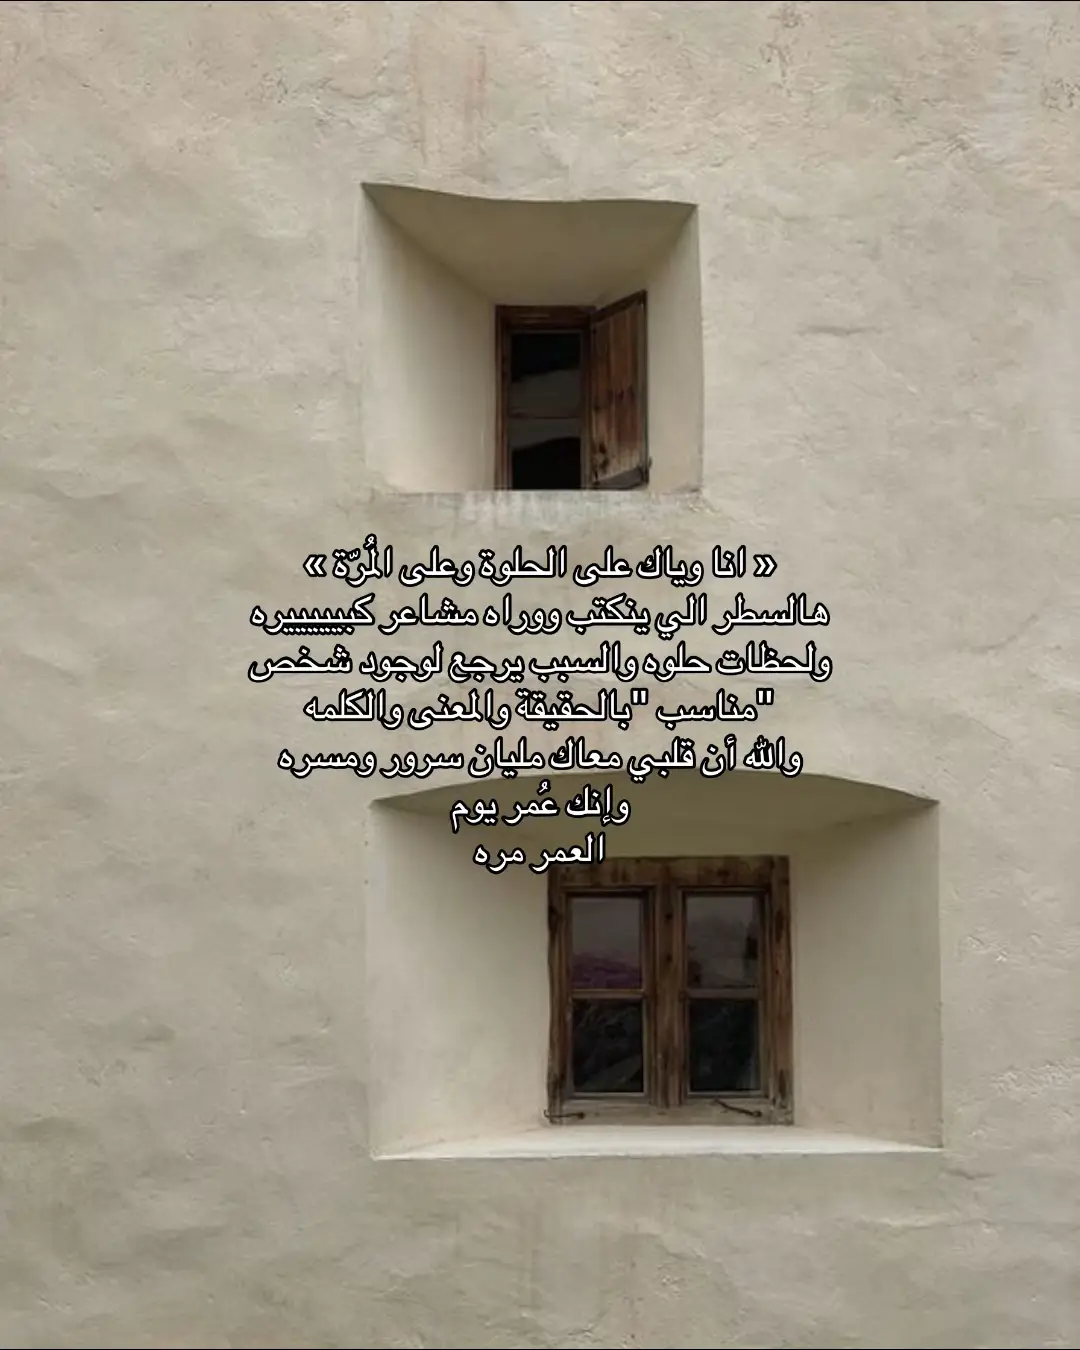 « انا وياك على الحلوة وعلى المُرّة »
هالسطر الي ينكتب ووراه مشاعر كبيييييره
ولحظات حلوه والسبب يرجع لوجود شخص
"مناسب "بالحقيقة والمعنى والكلمه
والله أن قلبي معاك مليان سرور ومسره
وإنك عُمر يوم
العمر مره